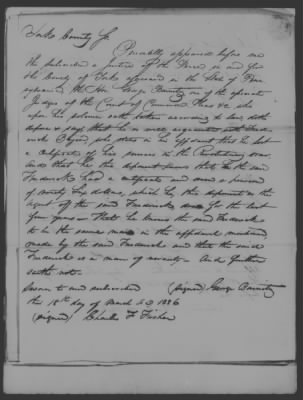 Berks County Ss.
Personally appeared before me
the subscriber a Justice of the Peace in and for
the County of Berks aforesaid in the State of Penn
sylvania the Hon. George one of the associate
Judges of the Court of Common Pleas &c who
upon his solemn oath taken according to law doth
depose & say that he is well acquainted with Fred
erick who states in his affidavit that he lost
a certificate of his pension in the Revolutionary war
And that he the deponent knows that the said
Frederick had a certificate and was a pension
of ninety Six dollars, which he this deponent as the
agent of the said Frederick for the last
four years – That he knows the said Frederick
to be the same man in the affidavit mentioned
made by the said Frederick and that the said
Frederick is a man of veracity – And further
saith not.
Sworn to and subscribed (signed) George
the 18th day of March A D 1826
(signed) Charles F